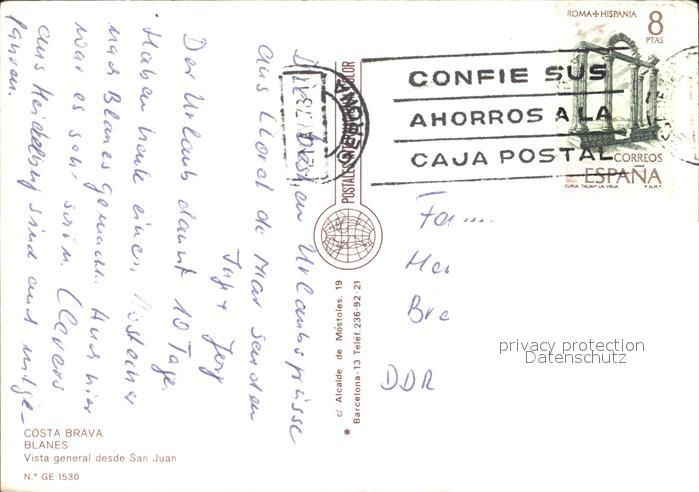 ROMA + HISPANIA
8
PTAS
CORREOS
ESPAÑA
CURIA. TALAVª LA VIEJA
F.N.M.T.
CONFIE SUS
AHORROS A LA
CAJA POSTAL
GERONA
Die besten Urlaubsgrüsse
aus Lloret de Mar senden
Jörg
Der Urlaub dauert 10 Tage.
Haben heute einen
nach Blanes gemacht. Auch hier
war es sehr schön. Clevers
aus Heidelberg sind auch mitge-
fahren.
Fam
DDR
privacy protection
Datenschutz
POSTALES INTERNACIONAL COLOR
c/ Alcalde de Móstoles, 19
* Barcelona-13 Teléf. 236-92-21
COSTA BRAVA
BLANES
Vista general desde San Juan
N.º GE 1530